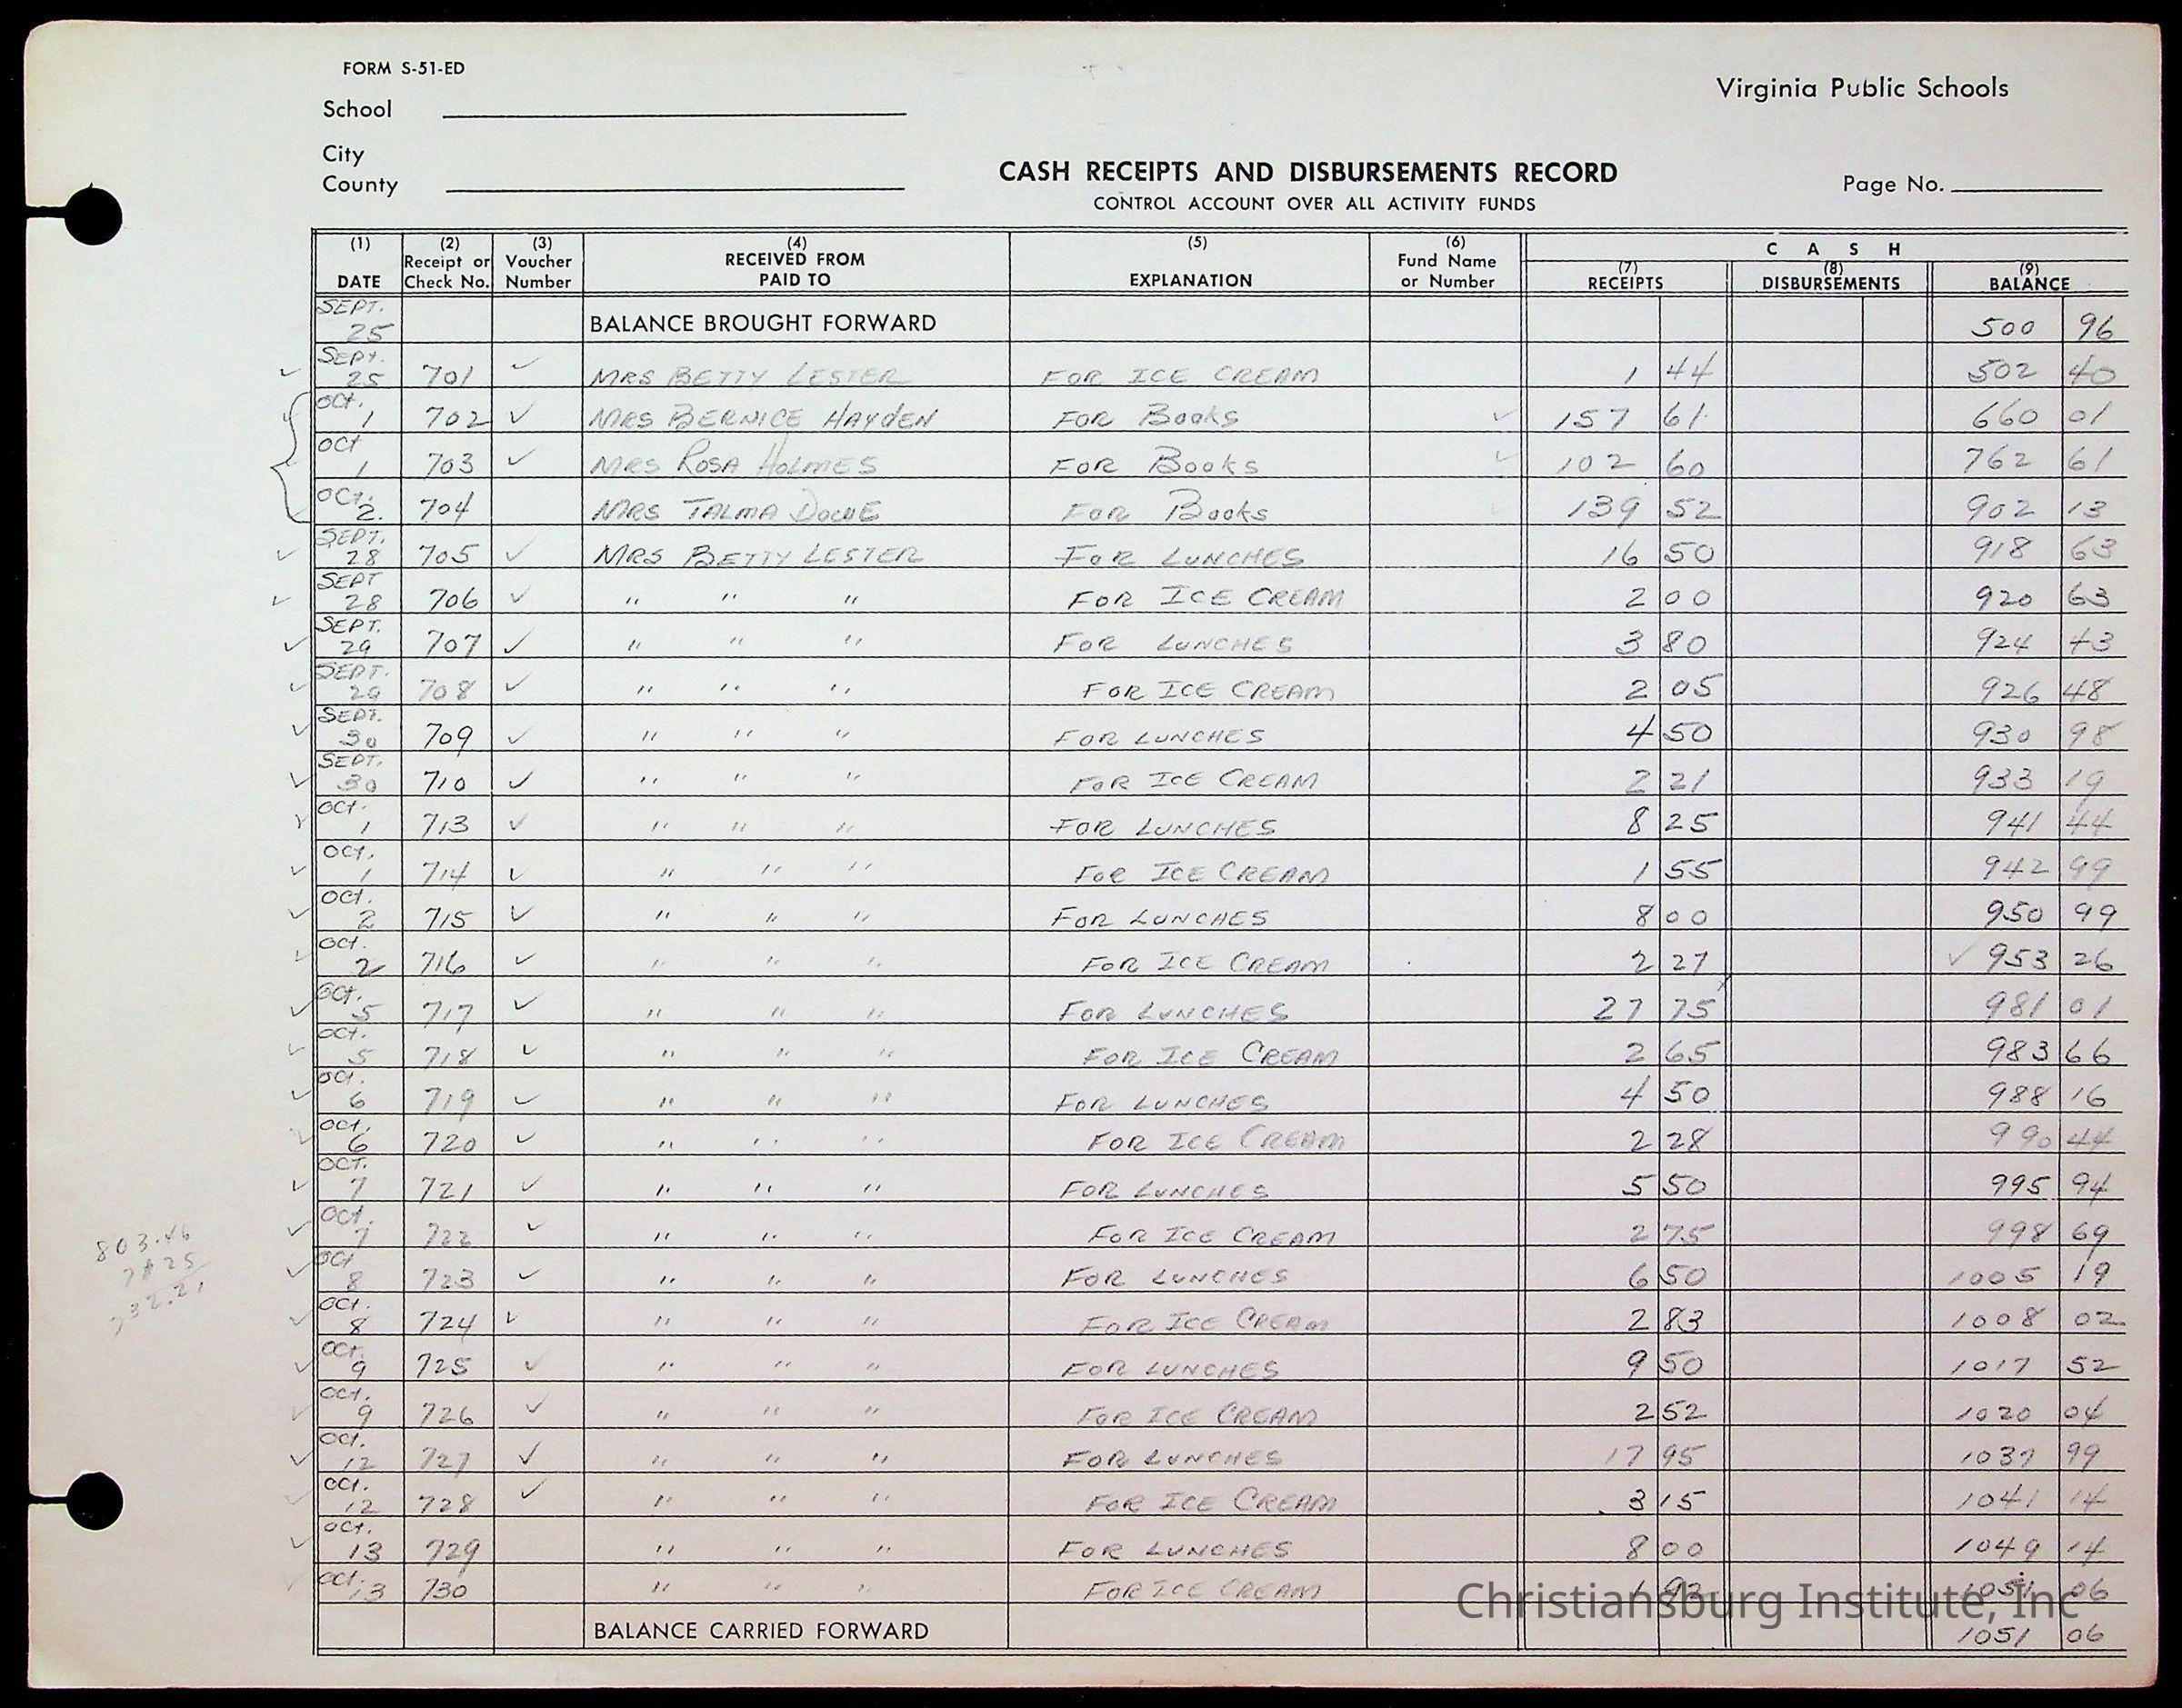 FORM S-51-ED
Virginia Public Schools
School
City
County
CASH RECEIPTS AND DISBURSEMENTS RECORD
CONTROL ACCOUNT OVER ALL ACTIVITY FUNDS
Page No.
(1) DATE (2) Receipt or Check No. (3) Voucher Number (4) RECEIVED FROM PAID TO (5) EXPLANATION (6) Fund Name or Number CASH (7) RECEIPTS (8) DISBURSEMENTS (9) BALANCE
SEPT. 25 BALANCE BROUGHT FORWARD 500 96
SEPT. 25 701 ✓ MRS BETTY LESTER FOR ICE CREAM 1 44 502 40
OCT. 1 702 ✓ MRS BERNICE HAYDEN FOR Books 157 61 660 01
OCT 1 703 ✓ MRS ROSA HOLMES FOR Books 102 60 762 61
OCT. 2. 704 MRS TALMA FOR Books 139 52 902 13
SEPT. 28 705 ✓ MRS BETTY LESTER FOR LUNCHES 16 50 918 63
SEPT 28 706 ✓ " " " FOR ICE CREAM 2 00 920 63
SEPT. 29 707 ✓ " " " FOR LUNCHES 3 80 924 43
SEPT. 29 708 ✓ " " " FOR ICE CREAM 2 05 926 48
SEPT. 30 709 ✓ " " " FOR LUNCHES 4 50 930 98
SEPT. 30 710 ✓ " " " FOR ICE CREAM 2 21 933 19
OCT. 1 713 ✓ " " " FOR LUNCHES 8 25 941 44
OCT. 1 714 ✓ " " " FOR ICE CREAM 1 55 942 99
OCT. 2 715 ✓ " " " FOR LUNCHES 8 00 950 99
OCT. 2 716 ✓ " " " FOR ICE CREAM 2 27 ✓ 953 26
OCT. 5 717 ✓ " " " FOR LUNCHES 27 75 981 01
OCT. 5 718 ✓ " " " FOR ICE CREAM 2 65 983 66
OCT. 6 719 ✓ " " " FOR LUNCHES 4 50 988 16
OCT. 6 720 ✓ " " " FOR ICE CREAM 2 28 990 44
OCT. 7 721 ✓ " " " FOR LUNCHES 5 50 995 94
OCT. 7 722 ✓ " " " FOR ICE CREAM 2 75 998 69
OCT 8 723 ✓ " " " FOR LUNCHES 6 50 1005 19
OCT. 8 724 ✓ " " " FOR ICE CREAM 2 83 1008 02
OCT. 9 725 ✓ " " " FOR LUNCHES 9 50 1017 52
OCT. 9 726 ✓ " " " FOR ICE CREAM 2 52 1020 04
OCT. 12 727 ✓ " " " FOR LUNCHES 17 95 1037 99
OCT. 12 728 ✓ " " " FOR ICE CREAM 3 15 1041 14
OCT. 13 729 " " " FOR LUNCHES 8 00 1049 14
OCT. 13 730 " " " FOR ICE CREAM 1 92 1051 06
BALANCE CARRIED FORWARD 1051 06
803.46
732.21
Christiansburg Institute, Inc